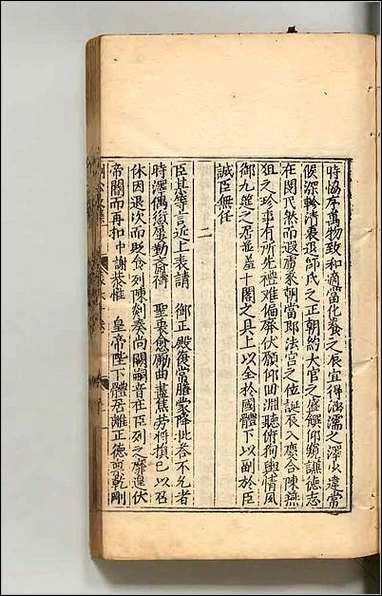 時協序萬物致和適當化養之辰宜得涵濡之澤少違常
候深軫清衷退師氏之正朝約大官之盛饌仰窺謙德志
在閔
然而遐裔來朝當即法宮之位誕辰入慶合陳燕
之珍事有所先禮難偏廢伏願仰回淵聽俯徇輿情風
御九筵之居並羞十閣之具上以全於國體下以副於臣
誠臣無任
二
臣某等言近上表請 御正殿復常膳蒙降批答不允者
時澤偶愆屢勤齋禱 聖衷愈勵曲盡焦勞將損己以召
休因退次而貶食列陳剡奏尚閟嗣音在臣列之靡遑伏
帝閽而再扣中謝恭惟 皇帝陛下體居離正德 乾剛